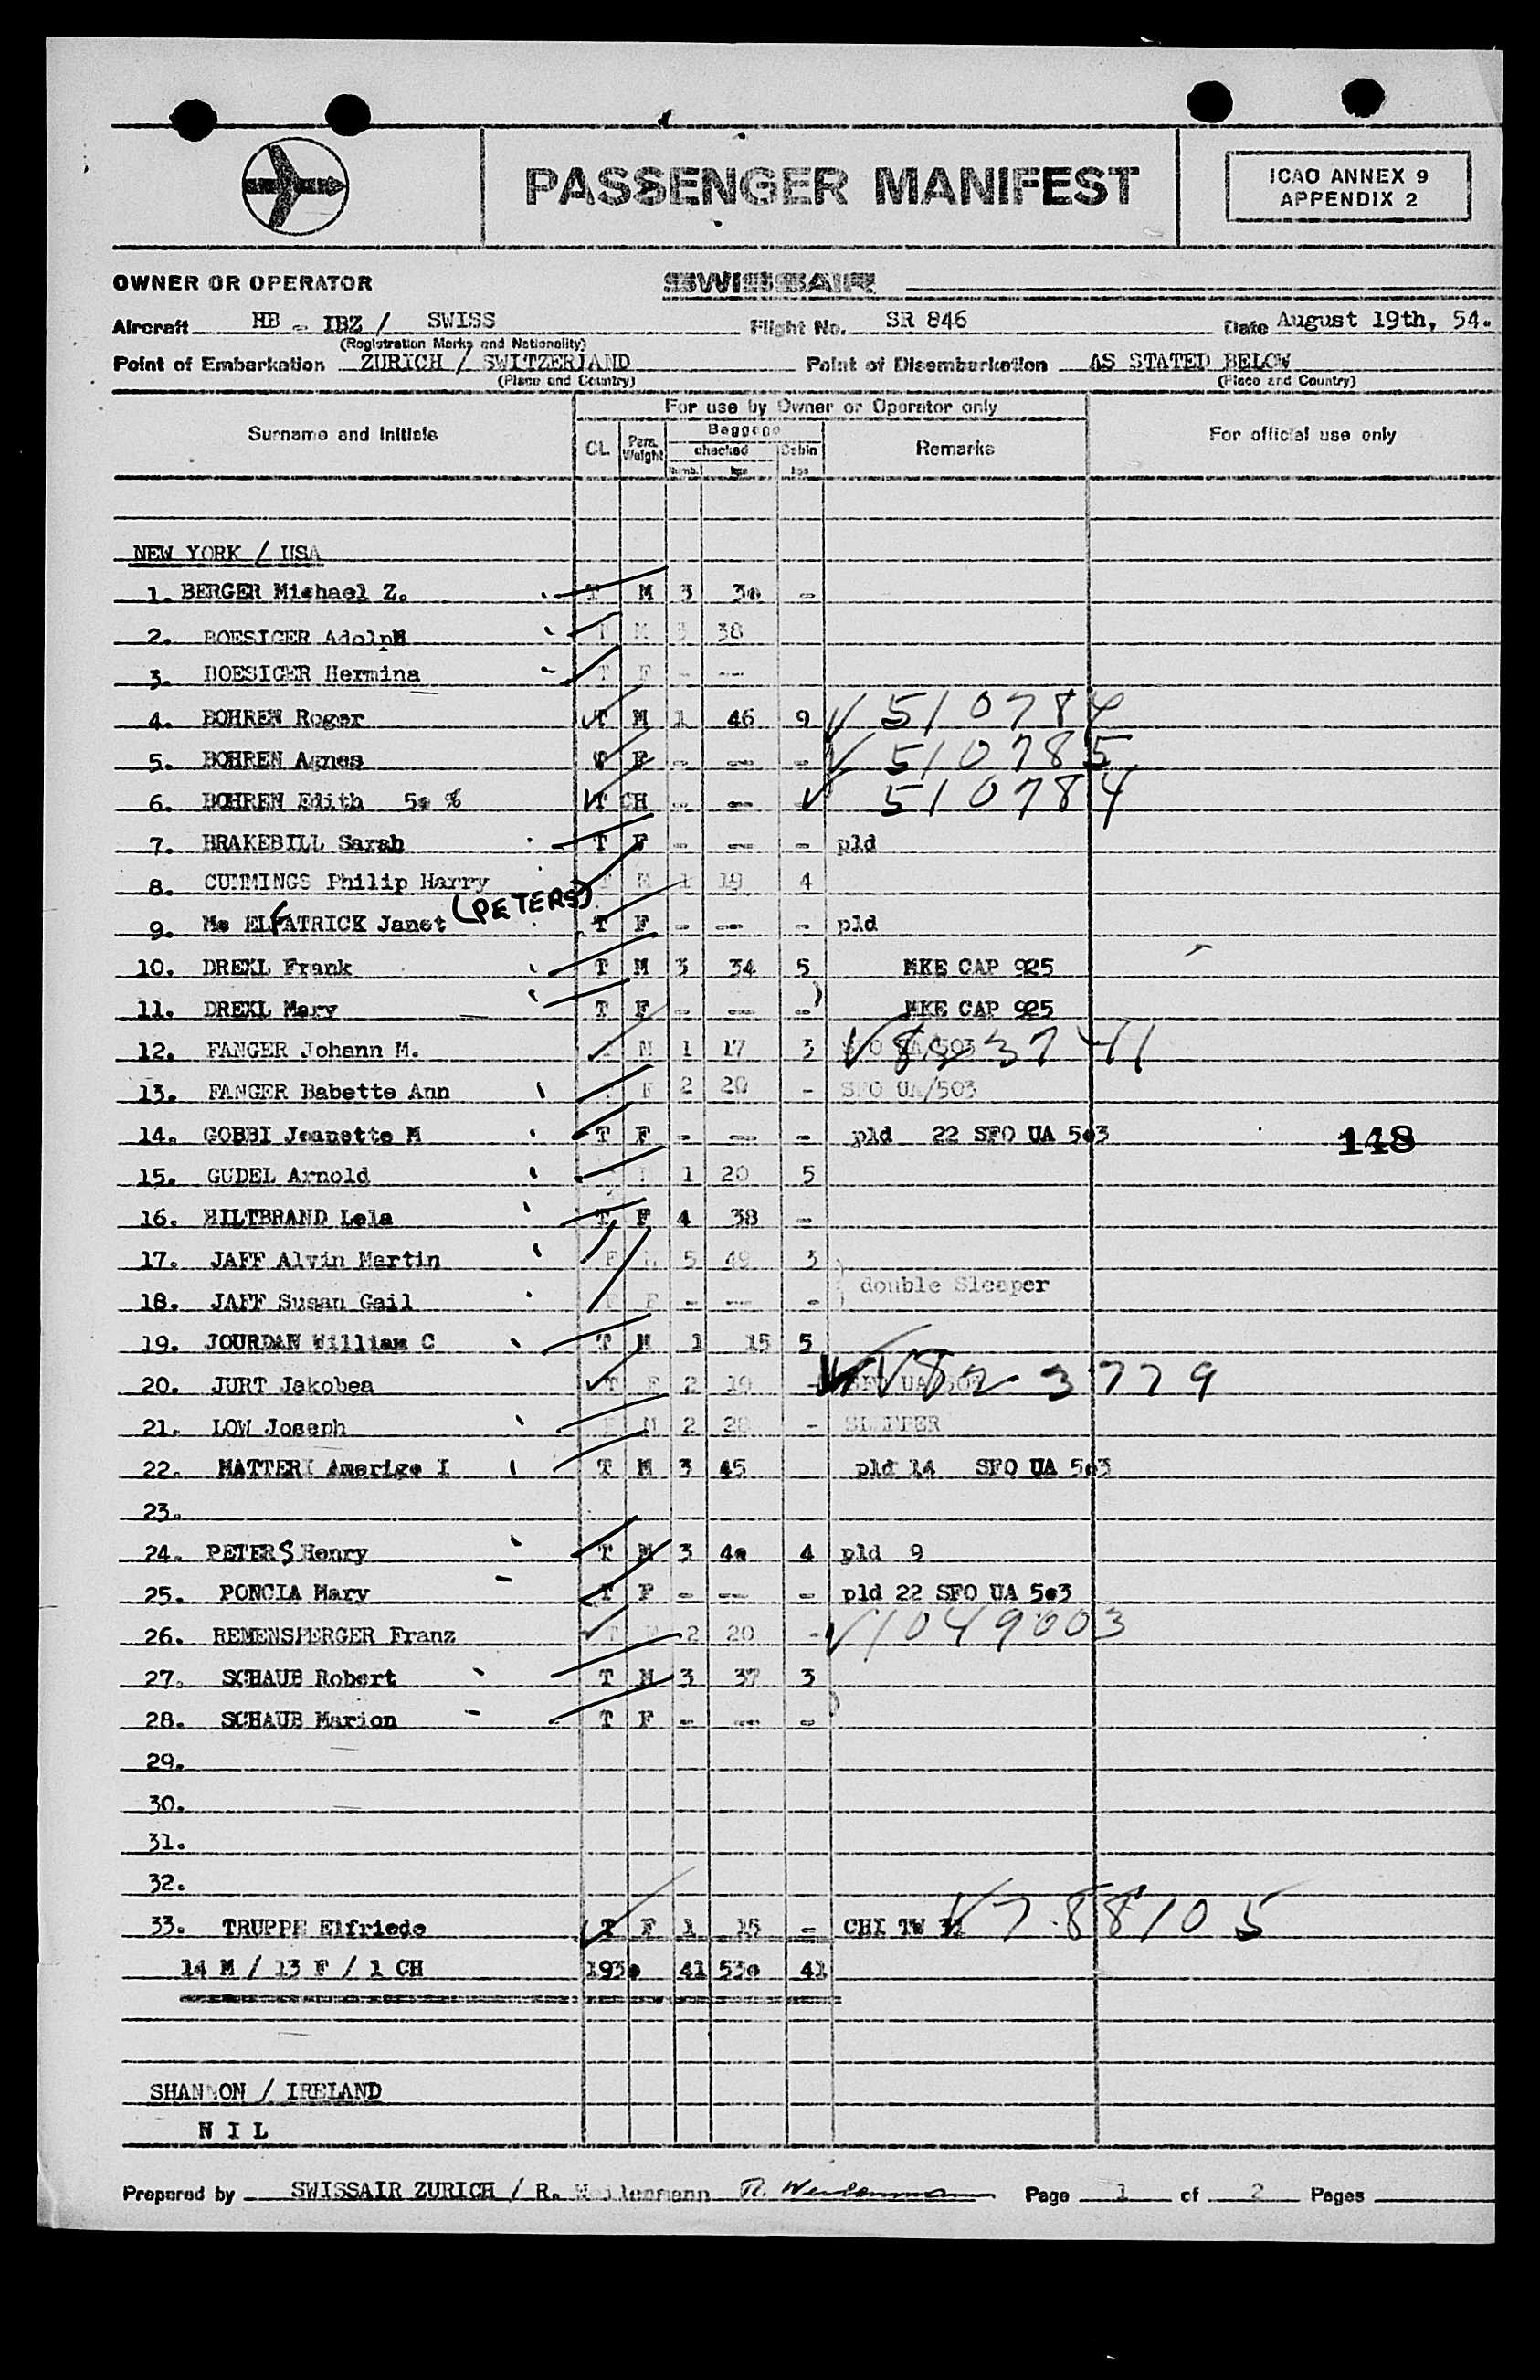 PASSENGER MANIFEST
ICAO ANNEX 9
APPENDIX 2
OWNER OR OPERATOR SWISSAIR
Aircraft HB - IBZ / SWISS Flight No. SR 846 Date August 19th, 54.
(Registration Marks and Nationality)
Point of Embarkation ZURICH / SWITZERLAND Point of Disembarkation AS STATED BELOW
(Place and Country) (Place and Country)
For use by Owner or Operator only
Surname and Initials CL. Pers. Weight Baggage checked Numb. kgs Cabin kgs Remarks For official use only
NEW YORK / USA
1. BERGER Michael Z. T M 3 3o -
2. BOESIGER Adolph T M 3 38
3. BOESIGER Hermina T F - --
4. BOHREN Roger T M 1 46 9 510784
5. BOHREN Agnes T F - -- - 510785
6. BOHREN Edith 5o % T CH - -- 510784
7. BRAKEBILL Sarah T F - -- - pld
8. CUMMINGS Philip Harry T M 1 19 4
9. Mc ELFATRICK Janet (PETERS) T F - -- - pld
10. DREXL Frank T M 3 34 5 MKE CAP 925
11. DREXL Mary T F - -- - MKE CAP 925
12. FANGER Johann M. M 1 17 3 SFO UA/503
13. FANGER Babette Ann F 2 20 - SFO UA/503
14. GOBBI Jeanette M T F - -- - pld 22 SFO UA 5o3 148
15. GUDEL Arnold 1 20 5
16. HILTBRAND Lela T F 4 38 -
17. JAFF Alvin Martin F M 5 49 3
double Sleeper
18. JAFF Susan Gail F F - -- -
19. JOURDAN William C T M 1 15 5
20. JURT Jakobea T F 2 19 - 823779
21. LOW Joseph F M 2 28 - SLEEPER
22. MATTERI Amerigo I T M 3 45 pld 14 SFO UA 5o3
23.
24. PETERS Henry T M 3 4o 4 pld 9
25. PONCIA Mary T F - -- - pld 22 SFO UA 5o3
26. REMENSPERGER Franz T M 2 20 - 1049003
27. SCHAUB Robert T M 3 37 3
28. SCHAUB Marion T F - -- -
29.
30.
31.
32.
33. TRUPPE Elfriede T F 1 15 - CHI TW 31 788105
14 M / 13 F / 1 CH 193o 41 53o 41
SHANNON / IRELAND
N I L
Prepared by SWISSAIR ZURICH / R. Weilenmann R. Weilenmann Page 1 of 2 Pages